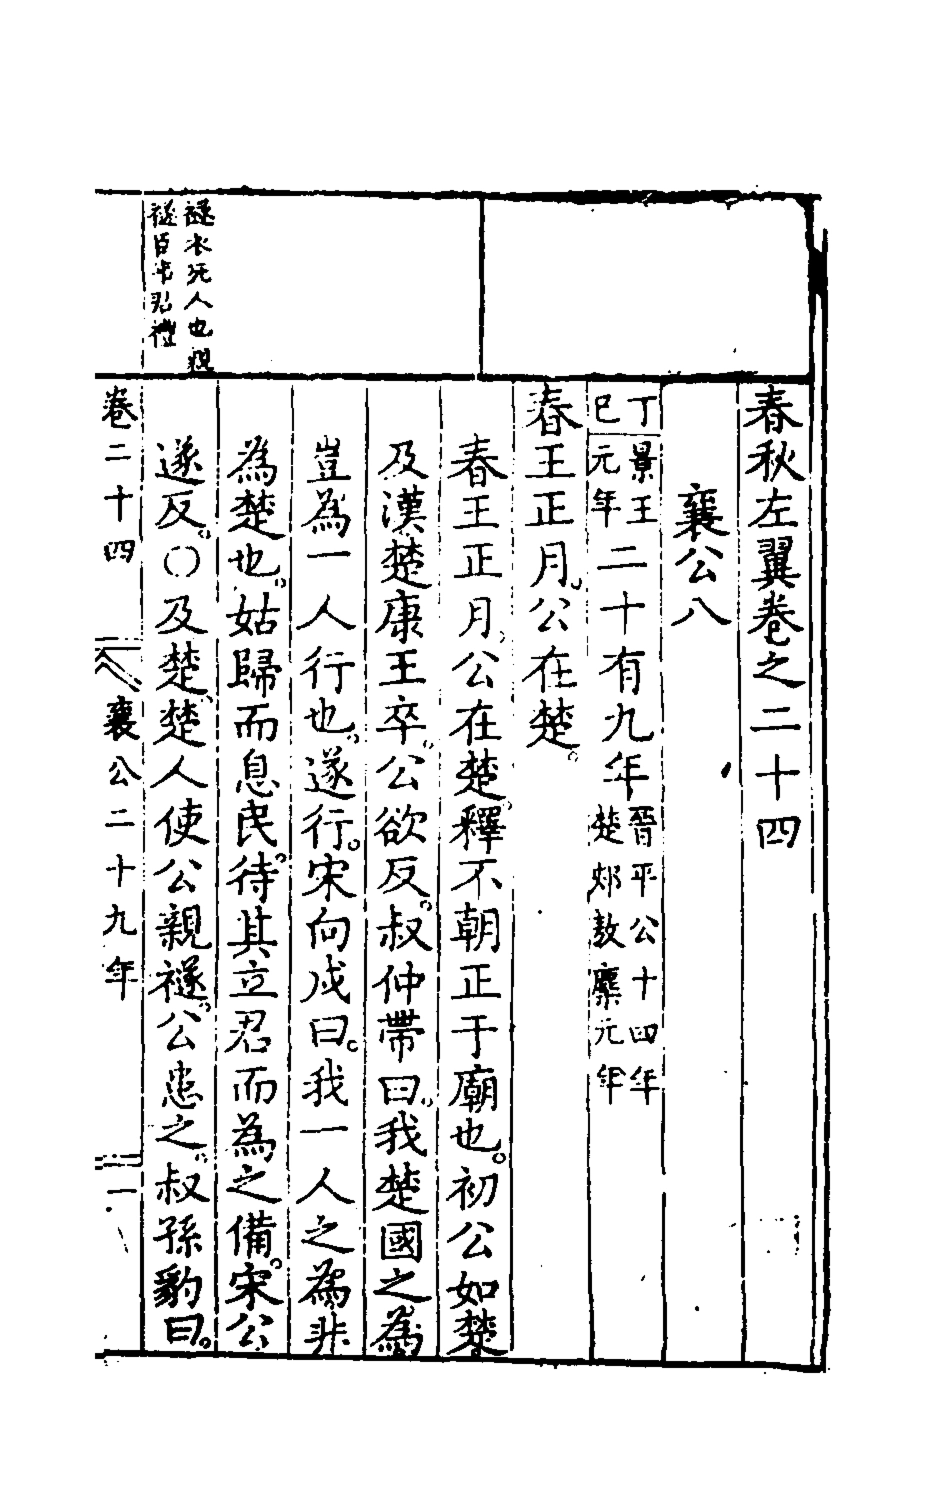 春秋左翼卷之二十四
襄公八
丁巳景王元年二十有九年晉平公十四年楚郟敖麇元年
春王正月公在楚
春王正月公在楚釋不朝正于廟也初公如楚
及漢楚康王卒公欲反叔仲帶曰我楚國之為
豈為一人行也遂行宋向戌曰我一人之為非
為楚也姑歸而息民待其立君而為之備宋公
遂反〇及楚楚人使公親襚公患之叔孫豹曰
襚衣死人也親
襚臣弔君禮
卷二十四
襄公二十九年
一